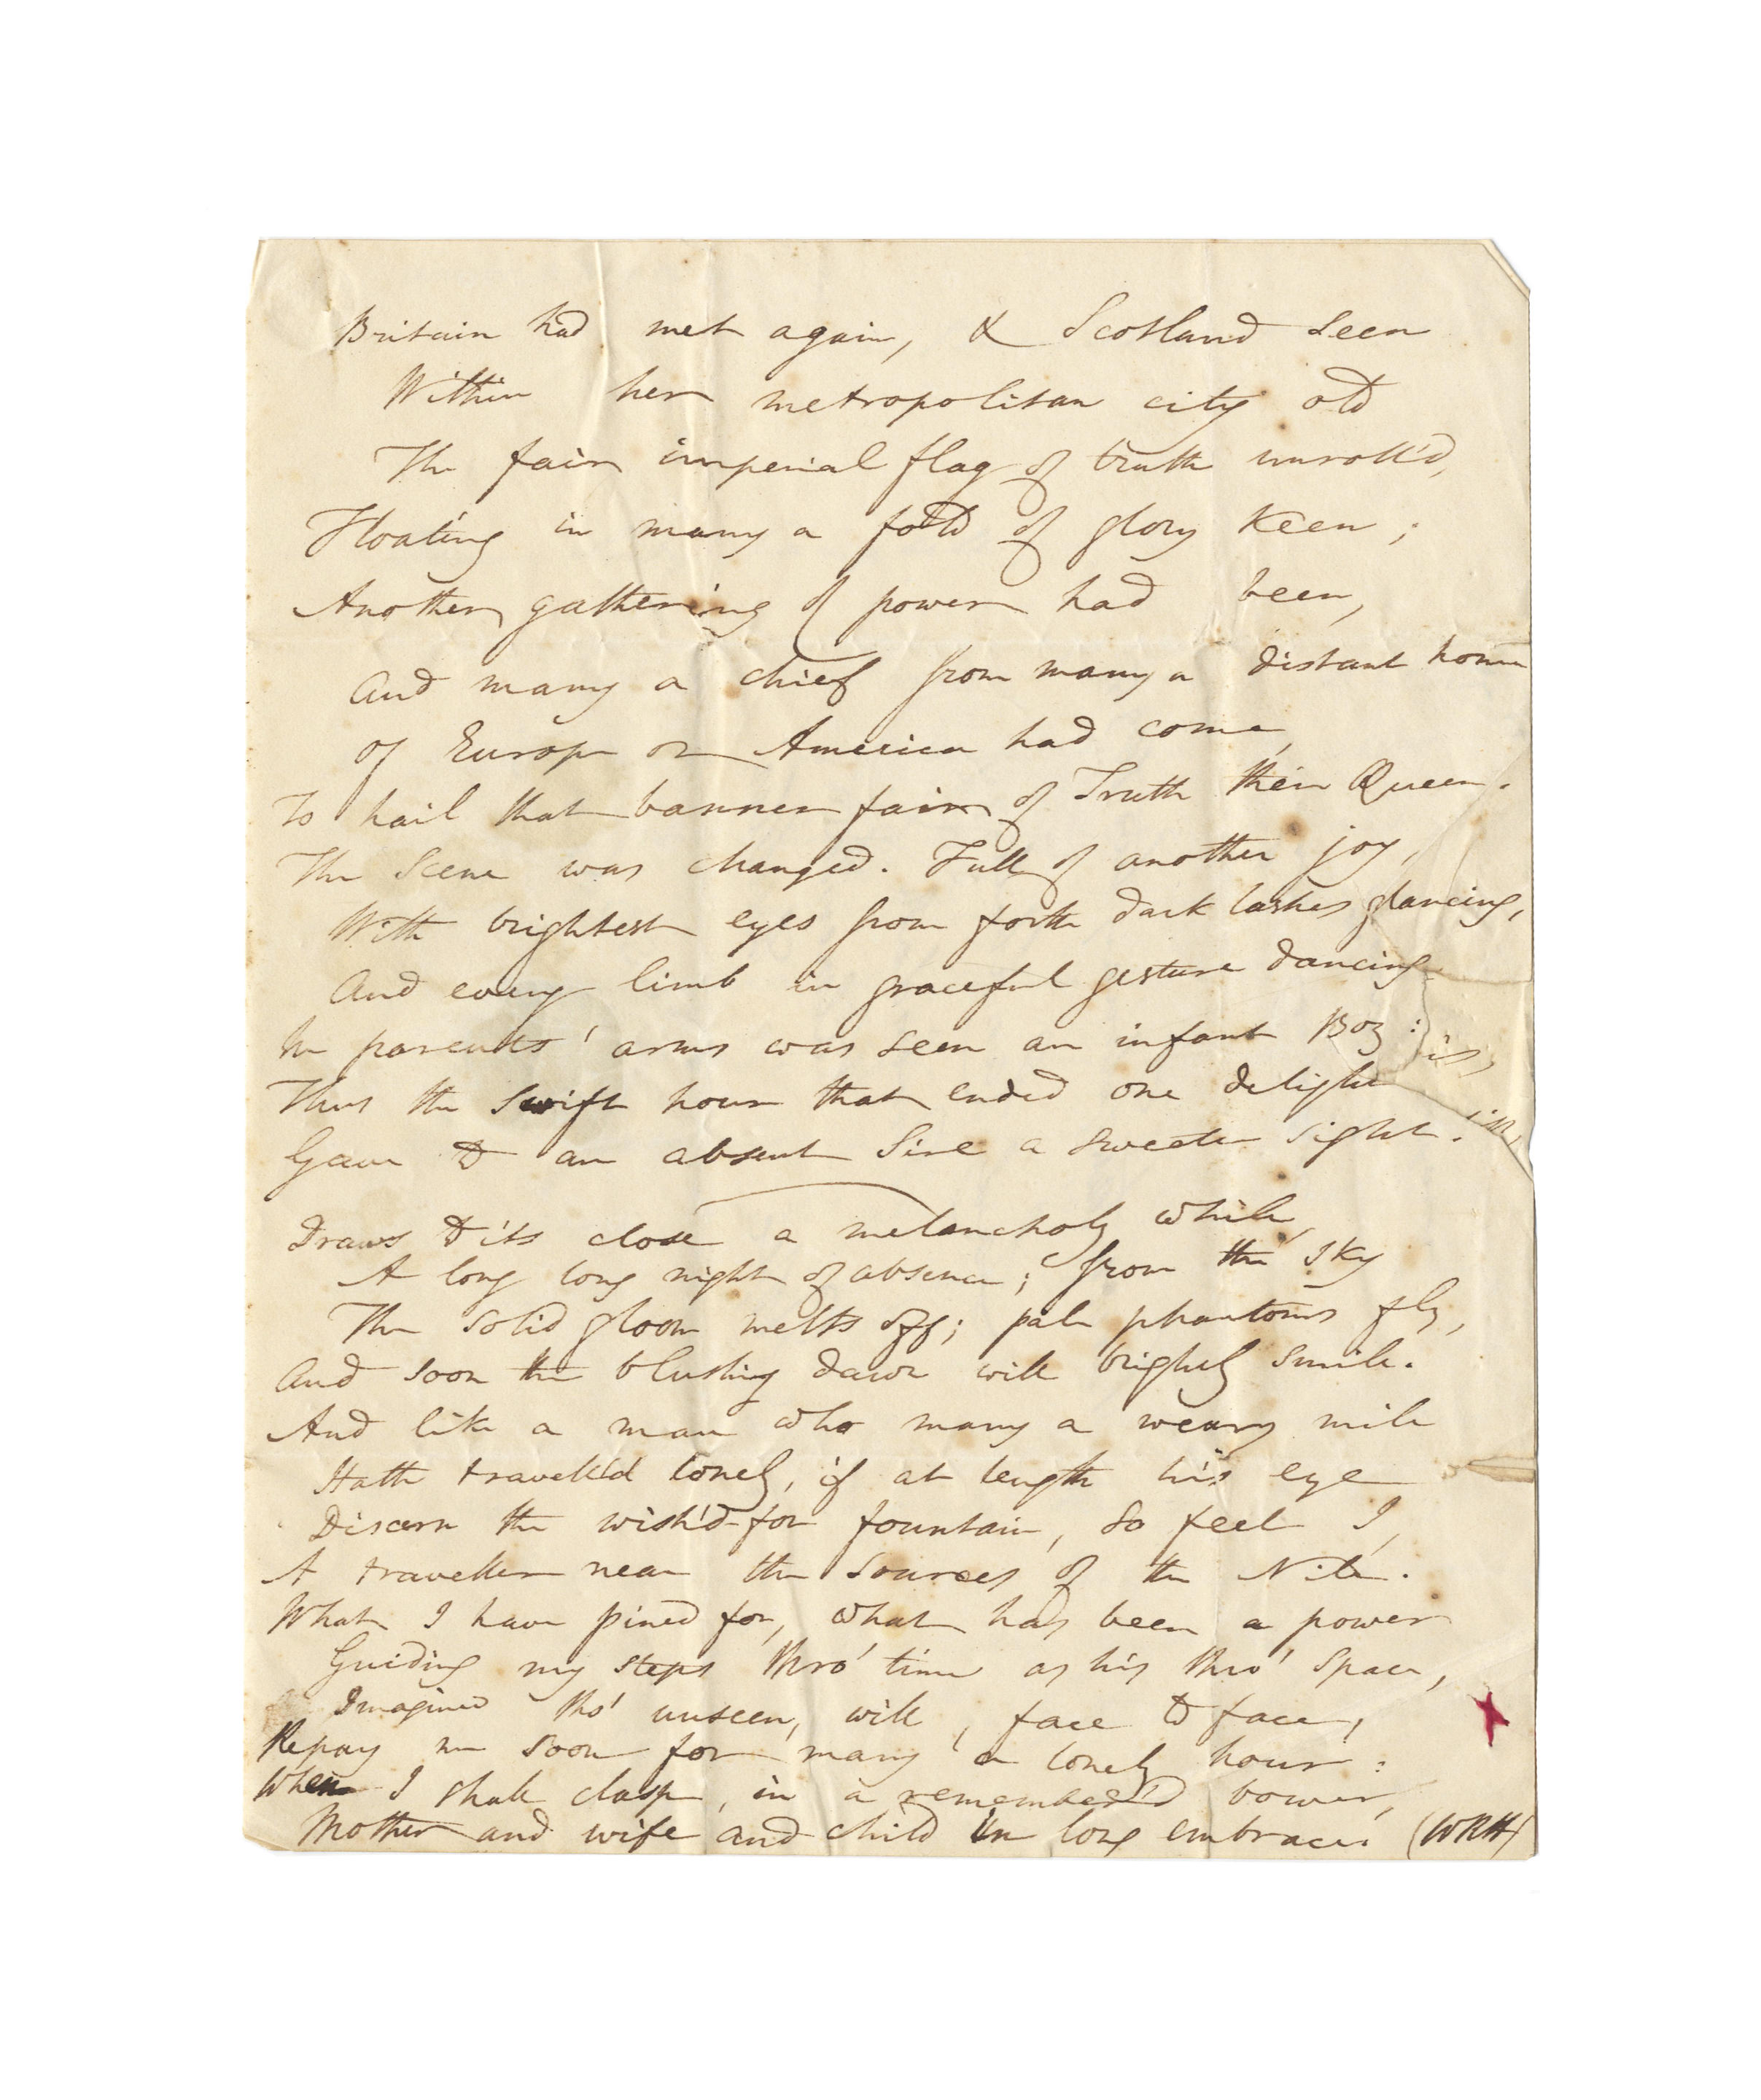 Britain had met again, & Scotland seen
Within her metropolitan city old
The fair imperial flag of truth unroll'd,
Floating in many a fold of glory keen;
Another gathering of power had been,
And many a chief from many a distant home
of Europe or America had come,
To hail that banner fair of Truth their Queen.
The scene was changed. Full of another joy,
With brightest eyes from forth dark lashes glancing,
And every limb in graceful gesture dancing
In parents' arms was seen an infant Boy:
Thus the swift hour that ended one delight
Gave to an absent Sire a sweeter sight.
Draws to its close a melancholy while,
A long long night of absence; from the sky
The solid gloom melts off; pale phantoms fly,
And soon the blushing dawn will brightly smile.
And like a man who many a weary mile
Hath travell'd lonely, if at length his eye
Discern the wish'd-for fountain, so feel I,
A traveller near the sources of the Nile.
What I have pined for, what has been a power
Guiding my steps thro' time as his thro' space,
Imagined tho' unseen, will, face to face,
Repay me soon for many a lonely hour:
When I shall clasp, in a remember'd bower,
Mother and wife and child in long embrace. (WRH)